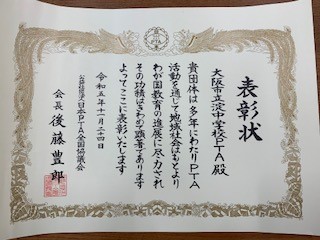 表彰状
大阪市立淀中学校PTA殿
貴団体は多年にわたりPTA
活動を通じて地域社会はもとより
わが国教育の進展に尽力され
その功績はきわめて顕著であります
よってここに表彰いたします
令和五年十一月二十四日
公益社団法人日本PTA全国協議会
会長 後藤豊郎